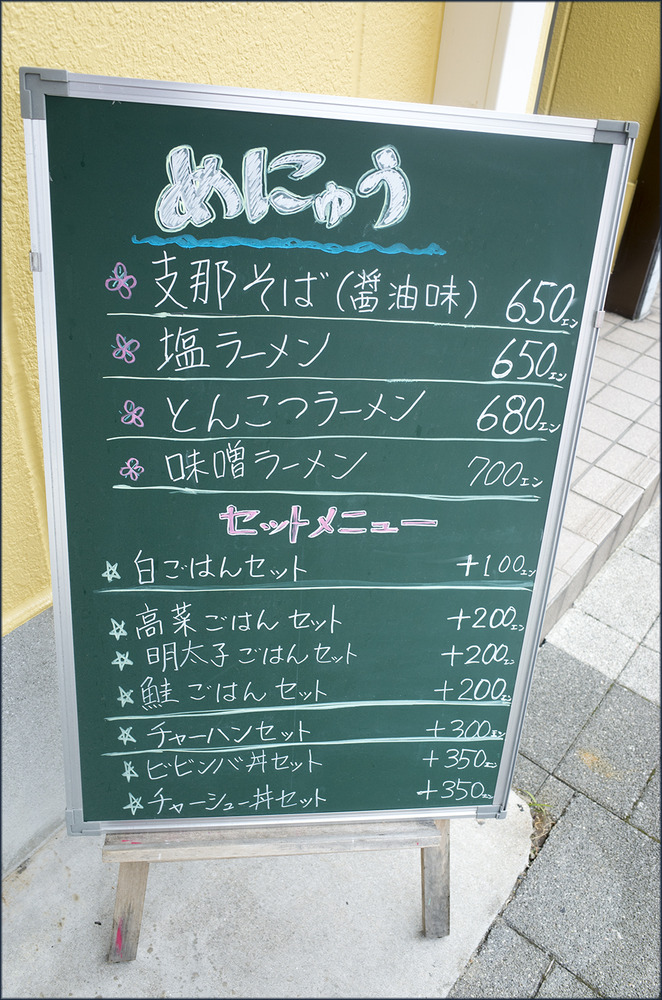 めにゅう
支那そば(醤油味) 650エン
塩ラーメン 650エン
とんこつラーメン 680エン
味噌ラーメン 700エン
セットメニュー
白ごはんセット +100エン
高菜ごはんセット +200エン
明太子ごはんセット +200エン
鮭ごはんセット +200エン
チャーハンセット +300エン
ビビンバ丼セット +350エン
チャーシュー丼セット +350エン